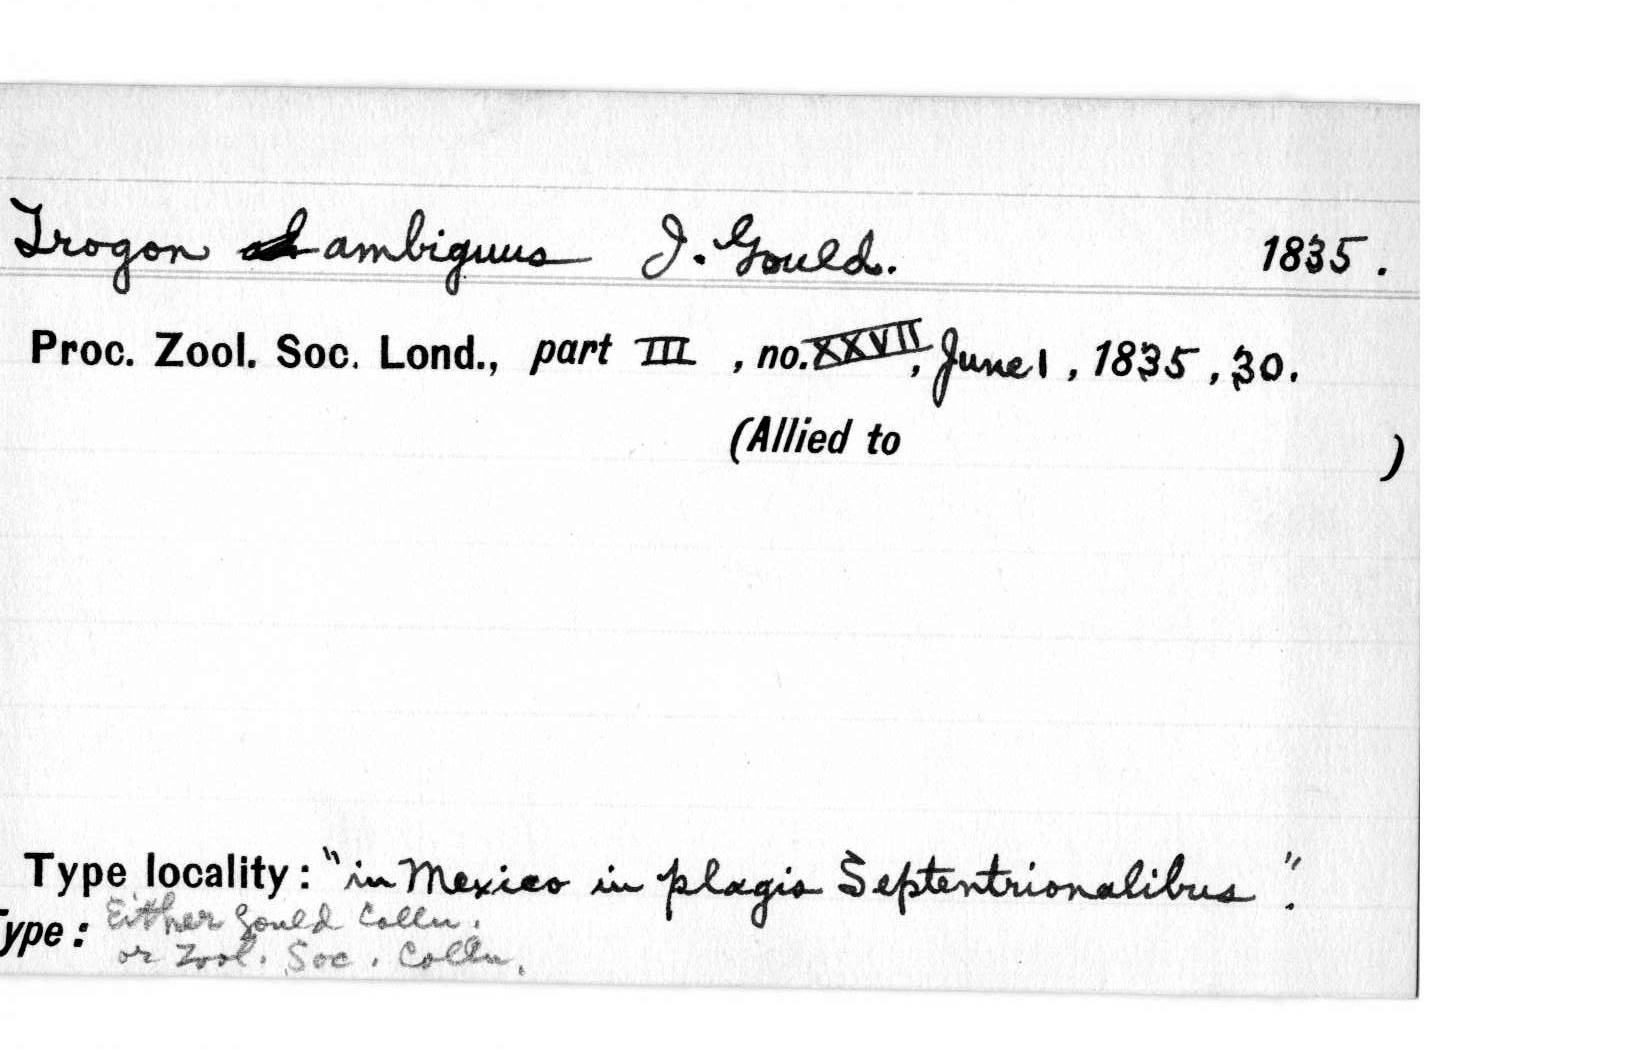 Trogon ambiguus J. Gould. 1835.
Proc. Zool. Soc. Lond., part III , no. XXVII, June 1, 1835, 30.
(Allied to )
Type locality: "in Mexico in plagis Septentrionalibus".
Type: Either Gould Colln.
or Zool. Soc. Colln.